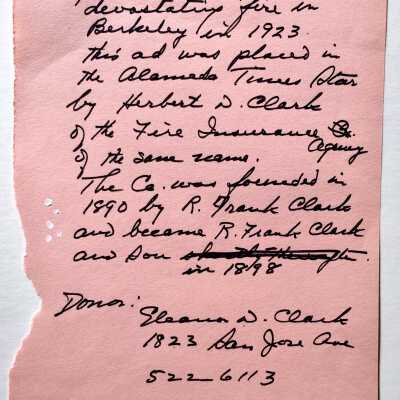 devastating fire in
Berkeley in 1923.
this ad was placed in
the Alameda Times Star
by Herbert D. Clark
of the Fire Insurance Co.
Agency
of the same name.
The Co. was founded in
1890 by R. Frank Clark
and became R. Frank Clark
and Son
in 1898
Donor:
Eleanor D. Clark
1823 San Jose Ave
522-6113